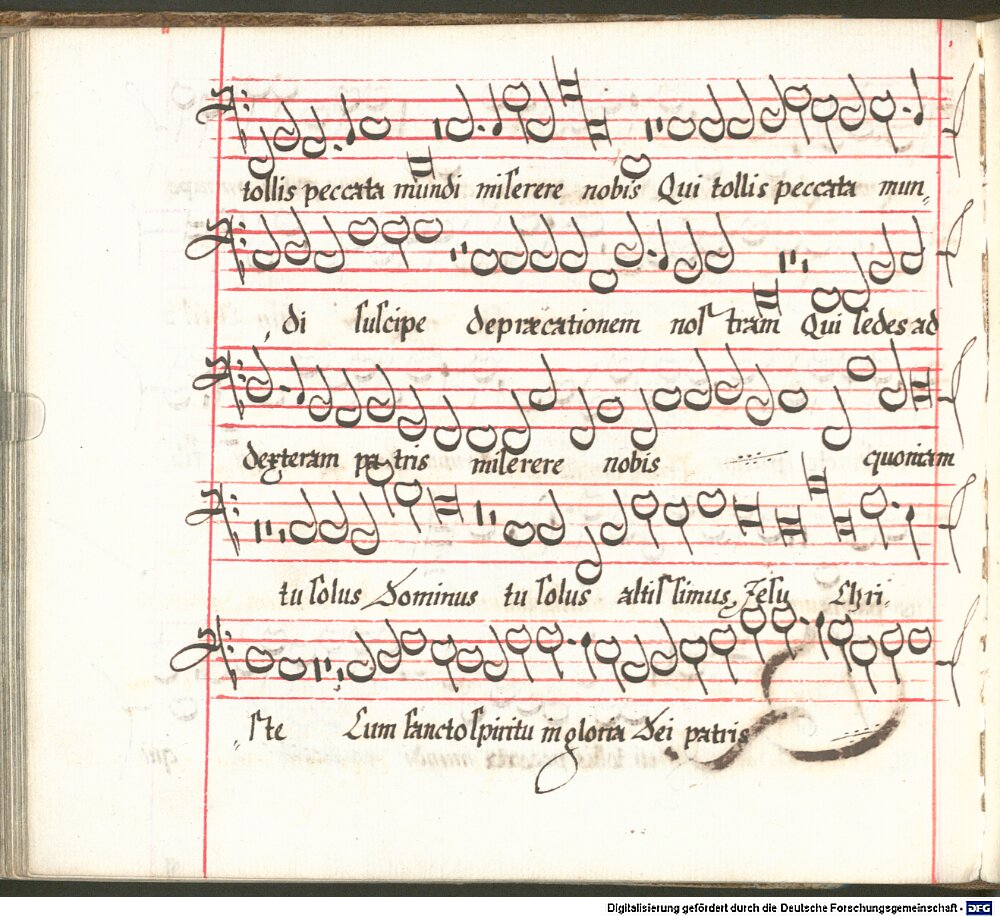 tollis peccata mundi miſerere nobis Qui tollis peccata mun„
di ſuſcipe depræcationem noſ tram Qui ſedes ad
dexteram pa tris miſerere nobis quoniam
tu ſolus Dominus tu ſolus altiſ ſimus, Jeſu Chri„
„ſte Cum ſancto ſpiritu in gloria Dei patris
Digitalisierung gefördert durch die Deutsche Forschungsgemeinschaft - DFG